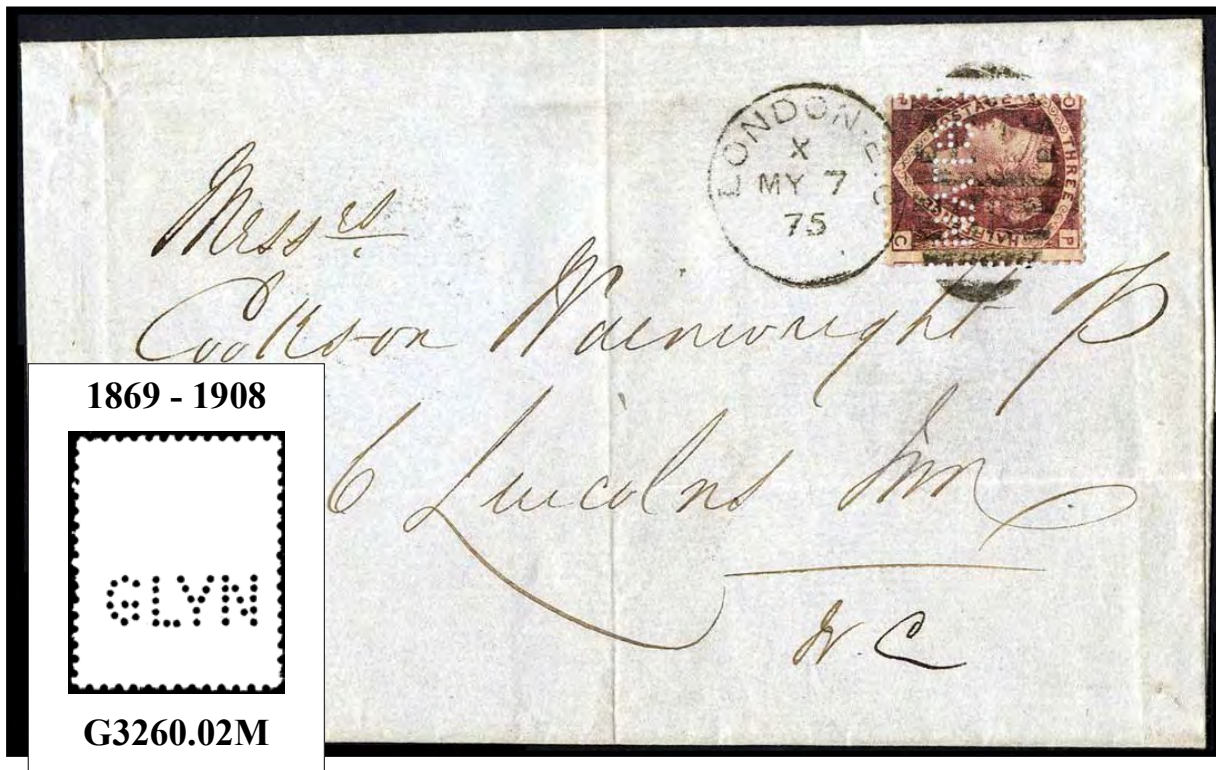 LONDON·E C
X
MY 7
75
P
O
POSTAGE
THREE
HALF
C
P
Messrs
Cookson Wainwright
6 Lincolns Inn
W.C
1869 - 1908
GLYN
G3260.02M